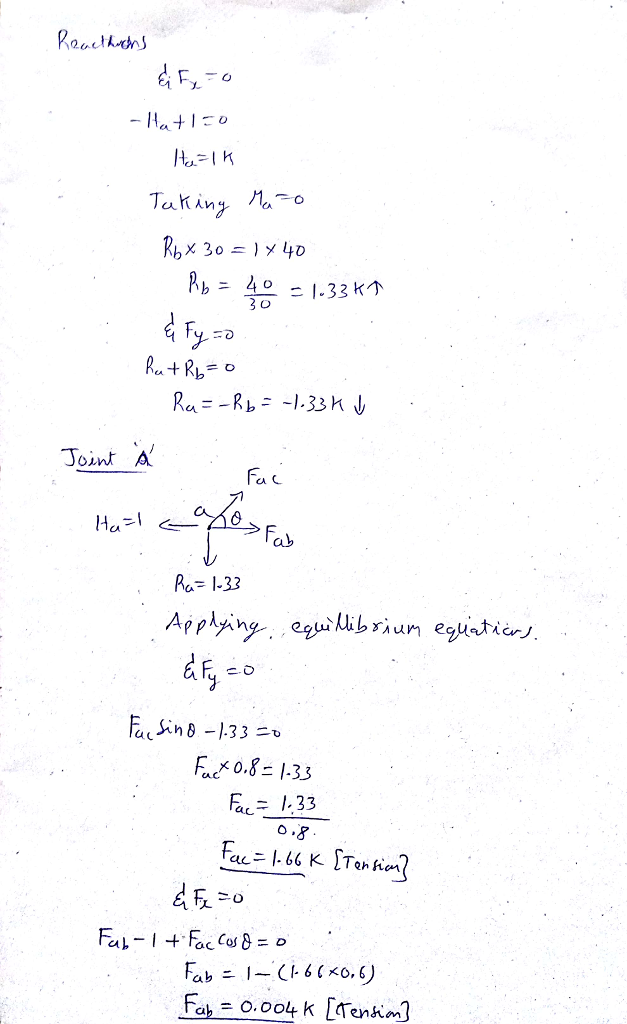 Reacthodns
Σ Fx = 0
- Ha + 1 = 0
Ha = 1 K
Taking Ma = 0
Rb x 30 = 1 x 40
Rb = 40/30 = 1.33 K ↑
Σ Fy = 0
Ra + Rb = 0
Ra = -Rb = -1.33 K ↓
Joint 'A'
Fac
Ha=1 a θ Fab
Ra = 1.33
Applying equillibrium equations.
Σ Fy = 0
Fac Sinθ - 1.33 = 0
Fac x 0.8 = 1.33
Fac = 1.33/0.8
Fac = 1.66 K [Tension]
Σ Fx = 0
Fab - 1 + Fac Cosθ = 0
Fab = 1 - (1.66 x 0.6)
Fab = 0.004 K [Tension]